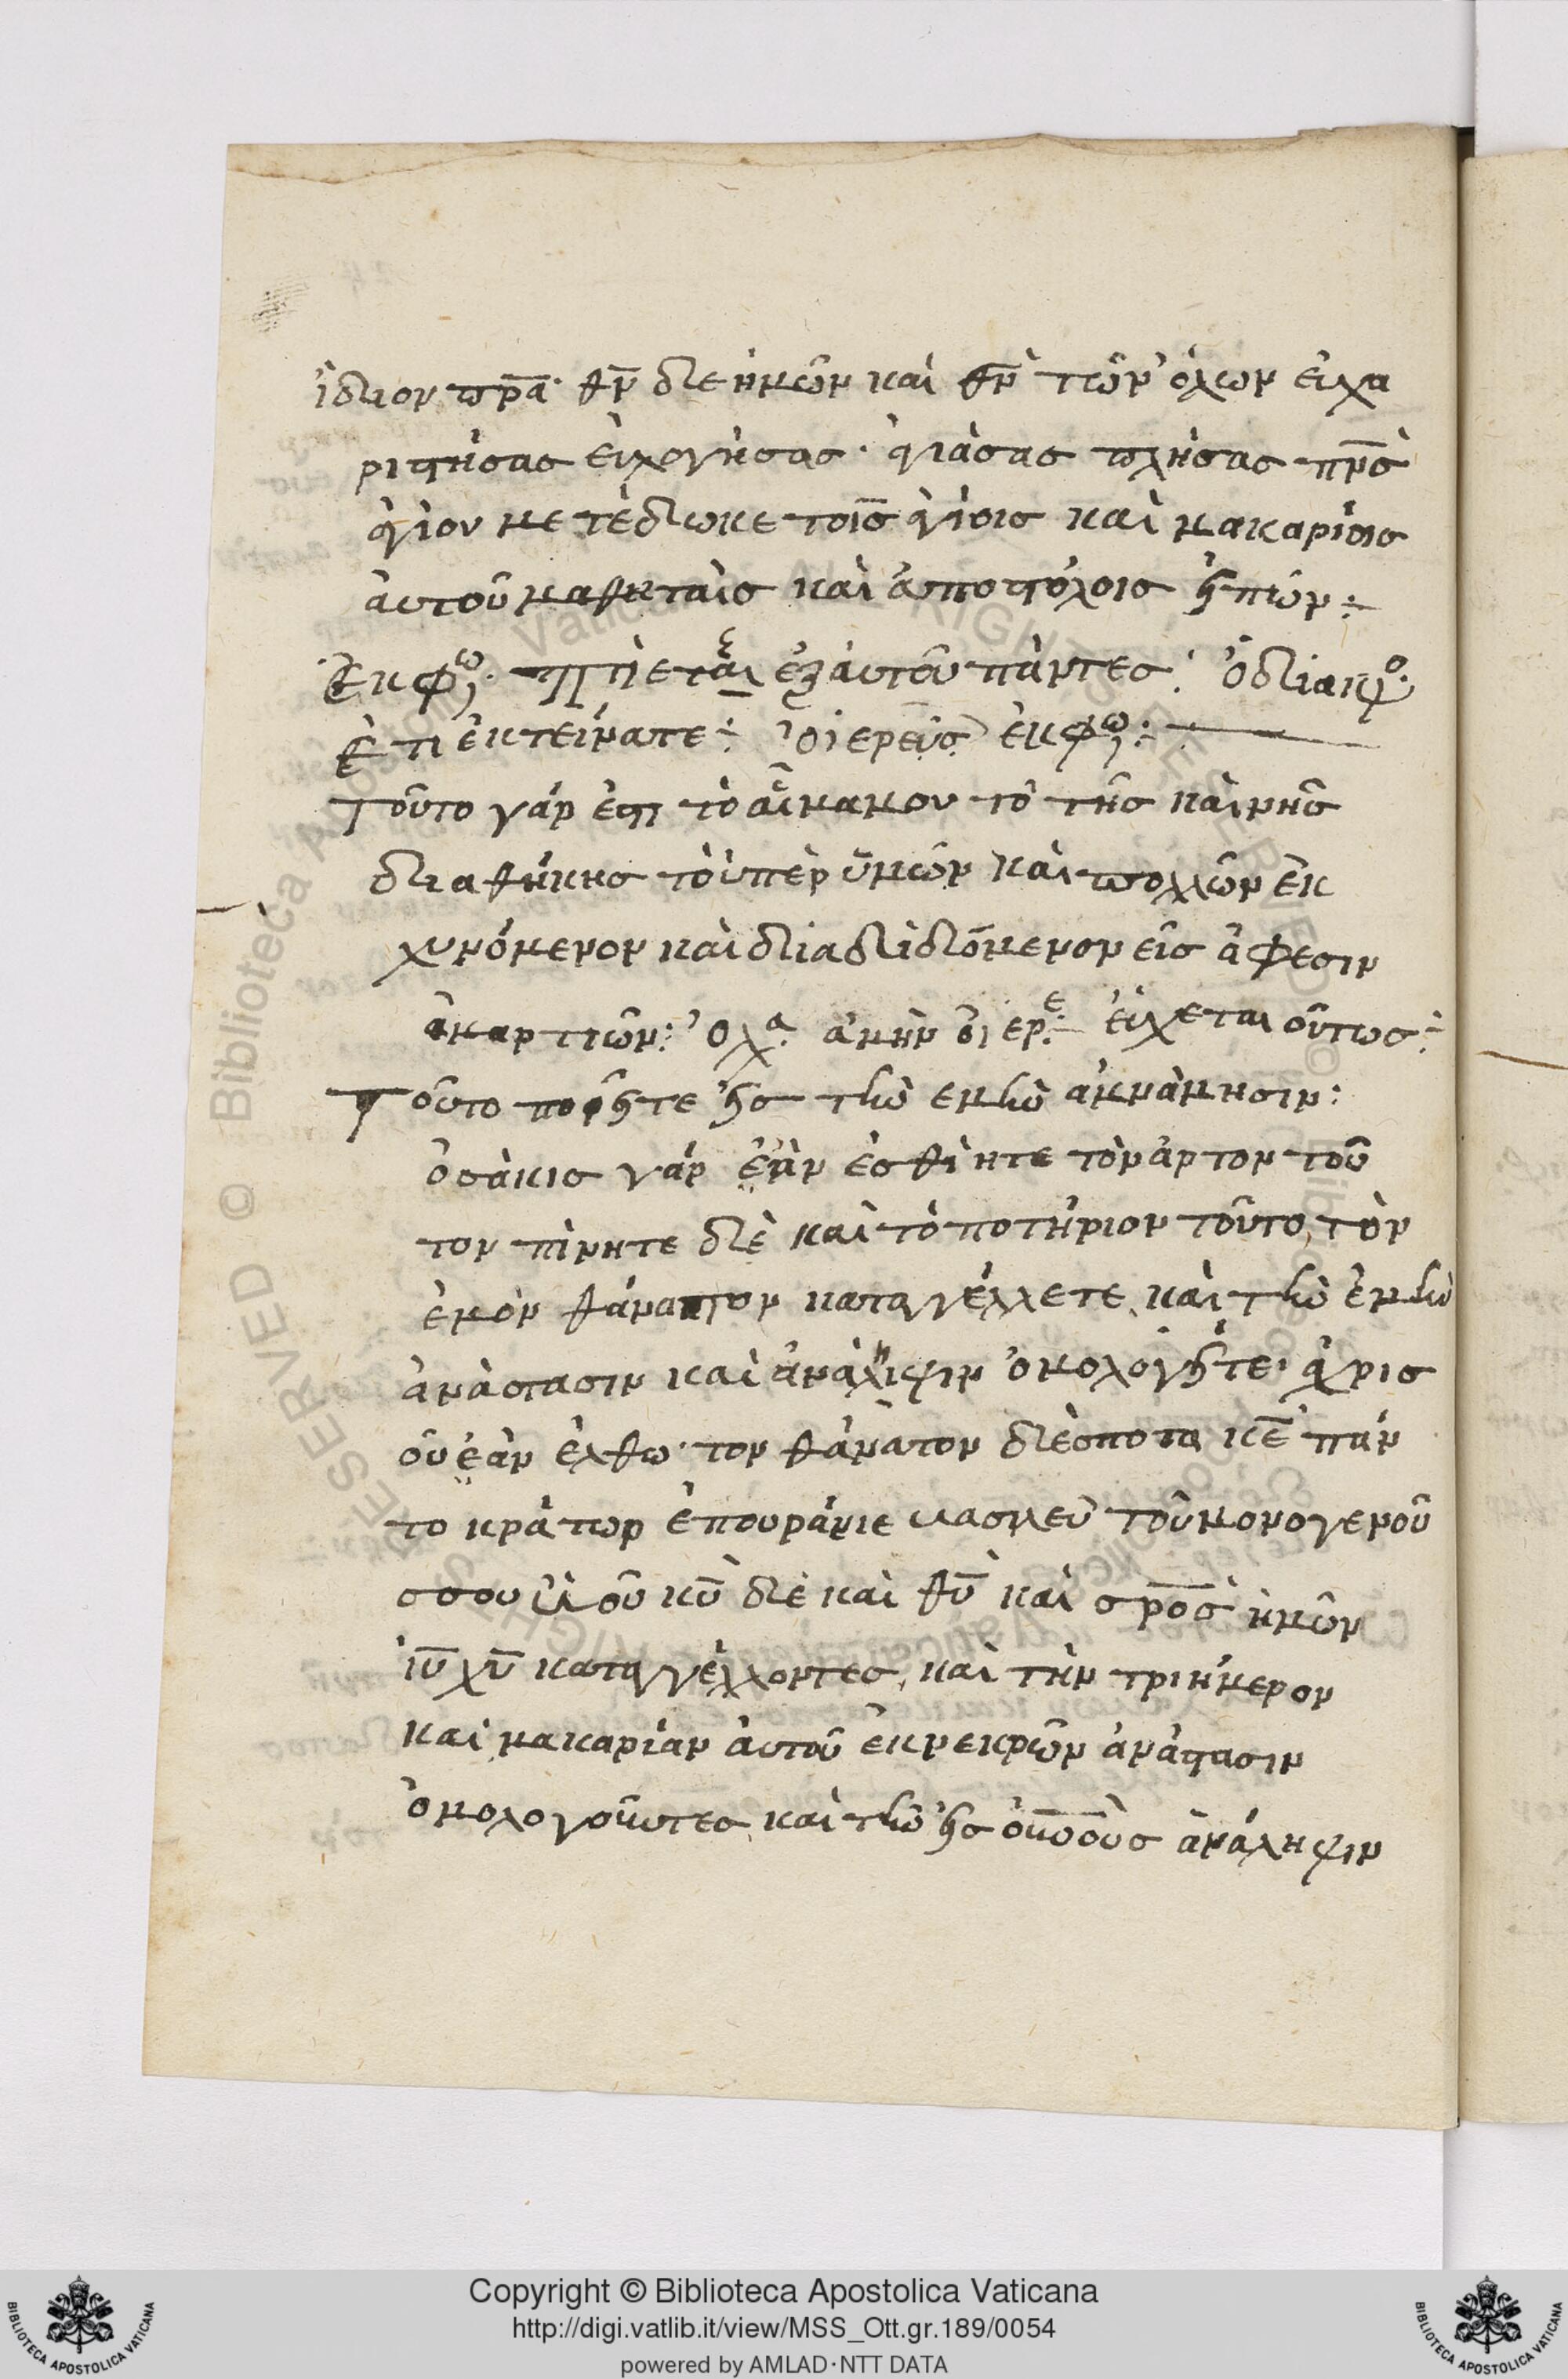 ἴδιον πρ̅α· θν̅ δὲ ἡμῶν καὶ θν̅ τῶν ὅλων εὐχα
ριστήσας εὐλογήσας· ἁγιάσας πλήσας πν̅σ
ἁγίου μετέδωκε τοῖς ἁγίοις καὶ μακαρίοις
ἀυτοῦ μαθηταῖς καὶ ἀποστόλοις εἰπών:
Ἐκφω. Πίεται ἐξ αὐτοῦ πάντες: ὁ διάκο.
Ἔτι ἐκτείνατε: ὁ ἱερεὺς ἐκφω:
Τοῦτο γάρ ἐστι τὸ αἷμα μου τὸ τῆς καινῆς
διαθήκης τὸ ὑπὲρ ὑμῶν καὶ πολλῶν ἐκ
χυνόμενον καὶ διαδιδόμενον εἰς ἄφεσιν
ἁμαρτιῶν: ὁ λα. ἀμήν ὁ ἱερε. εὔχεται οὕτως:
Τοῦτο ποιεῖτε εἰς τὴν ἐμὴν ἀνάμνησιν:
ὁσάκις γάρ ἐὰν ἐσθίητε τὸν ἄρτον τοῦ
τον πίνητε δὲ καὶ τὸ ποτήριον τοῦτο, τὸν
ἐμὸν θάνατον καταγγέλλετε, καὶ τὴν ἐμὴν
ἀνάστασιν καὶ ἀνάληψιν ὁμολογεῖτε· ἄχρις
οὗ ἐὰν ἔλθω· τον θάνατον δέσποτα κε̅ παν
τοκράτωρ ἐπουράνιε βασιλεῦ τοῦ μονογενοῦ
σσου υἱοῦ κυ̅ δὲ καὶ θυ̅ καὶ σρ̅οσ ἡμῶν
ιυ̅ χυ̅ καταγγέλλοντες, καὶ τὴν τριήμερον
καὶ μακαρίαν ἀυτοῦ ἐκ νεκρῶν ἀνάστασιν
ὁμολογοῦντες, καὶ τὴν εἰς οὐν̅οὺς ἀνάληψιν
Copyright © Biblioteca Apostolica Vaticana
http://digi.vatlib.it/view/MSS_Ott.gr.189/0054
powered by AMLAD·NTT DATA